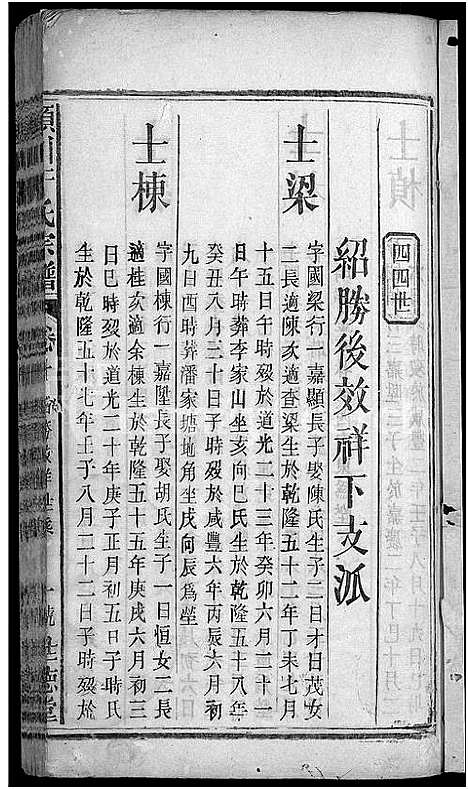 四四世
紹勝後效祥下支派
士梁
字國梁行一嘉顯長子娶陳氏生子二日才日茂女
二長適陳次適查梁生於乾隆五十二年丁未七月
十五日午時歿於道光二十三年癸卯六月二十一
日午時葬李家山坐亥向巳氏生於乾隆五十八年
癸丑八月三十日子時歿於咸豐六年丙辰六月初
九日酉時葬潘家塘地角坐戌向辰為塋
士棟
字國棟行一嘉陞長子娶胡氏生子一日恒女二長
適桂次適余棟生於乾隆五十五年庚戌六月初三
日巳時歿於道光二十年庚子正月初五日子時氏
生於乾隆五十七年壬子八月二十二日子時歿於